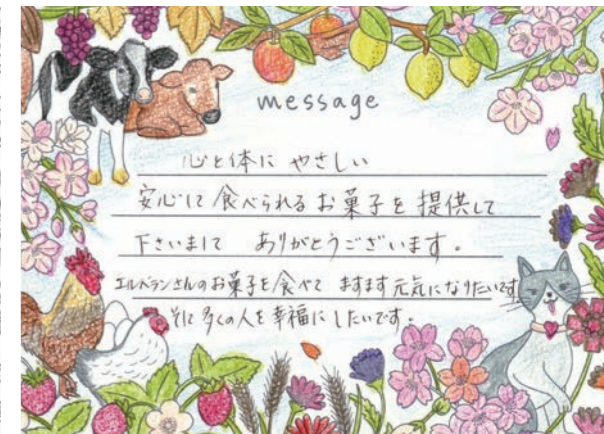 message
心と体に やさしい
安心して 食べられる お菓子を 提供して
下さいまして ありがとうございます。
エルベランさんのお菓子を食べて ますます元気になりたいです
そして多くの人を幸福にしたいです。